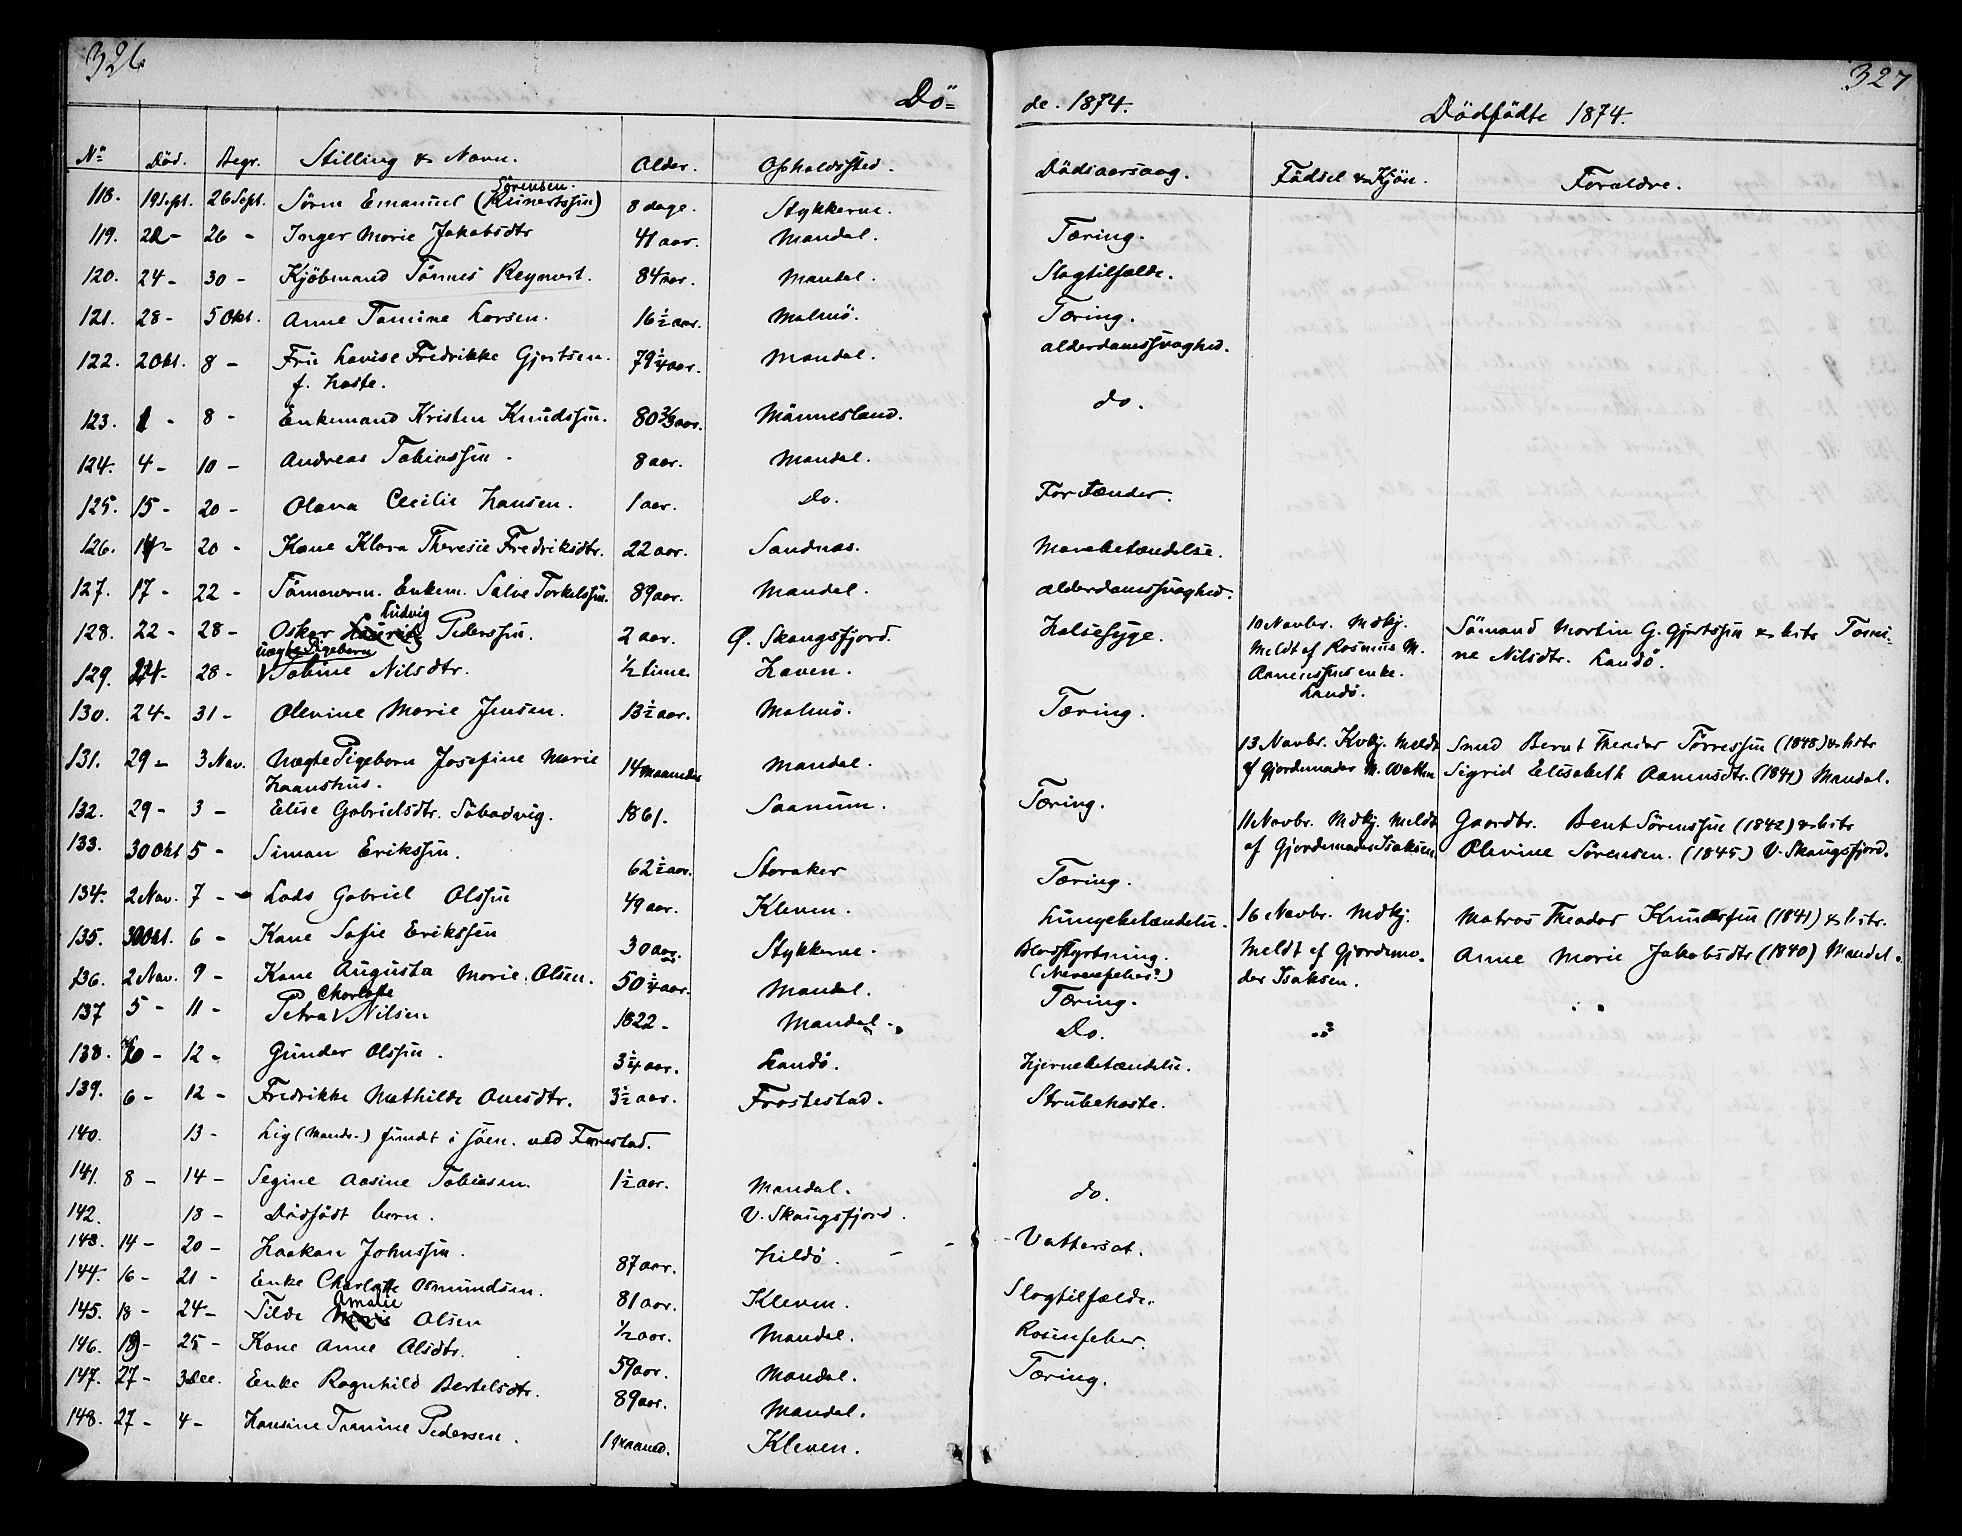 326
327
Dö-
de. 1874.
Dödfödte 1874.
No Död. Begr. Stilling & Navn. Alder. Opholdssted. Dödsaarsag. Födsel & Kjön. Forældre.
Sörensen.
118. 19 Sept. 26 Sept. Sören Emanuel (Reinertssen) 8 dage. Stykkerne.
119. 22 - 26 - Inger Marie Jakobsdtr 41 aar. Mandal. Tæring.
120. 24 - 30 - Kjöbmand Tönnes Reymert. 84 aar. Mandal. Slagtilfælde.
121. 28 - 5 Okt. Anne Tomine Larsen. 16 1/2 aar. Malmö. Tæring.
122. 2 Okt. 8 - Fru Lovise Fredrikke Gjertsen. 79 1/4 aar. Mandal. Alderdomssvaghed.
f. Haste.
123. 1 - 8 - Enkemand Kristen Knudssen. 80 2/3 aar. Männesland. do.
124. 4 - 10 - Andreas Tobiassen. 8 aar. Mandal.
125. 15 - 20 - Olava Cecilie Hansen. 1 aar. Do. For Tænder.
126. 14 - 20 - Kone Klara Theresie Fredriksdtr. 22 aar. Sandnæs. Mavebetændelse.
127. 17 - 22 - Tömmerm. Enkem. Salve Torkelssen. 89 aar. Mandal. Alderdomssvaghed.
Ludvig
128. 22 - 28 - Oskar Pederssen. 2 aar. Ø. Skougsfjord. Halsesyge.
10 Novbr. Mdkj.
Meldt af Rasmus M.
Aanenssens enke.
Landö.
Sömand Martin G. Gjertssen & hstr Tomi-
ne Nilsdtr. Landö.
uægte Pigebarn
129. 24 - 28 - Tobine Nilsdtr. 1/2 time Haven.
130. 24 - 31 - Olevine Marie Jensen. 13 1/2 aar. Malmö. Tæring.
131. 29 - 3 Nov. Uægte Pigebarn Josefine Marie 14 maaneder Mandal.
Haanshus.
13 Novbr. Kvkj. Meldt
af Gjordemoder M. Watten
Smed Bernt Theodor Törressen (1848) & hstr
Sigrid Elisabeth Aanensdtr. (1841) Mandal.
132. 29 - 3 - Elise Gabrielsdtr. Söbadvig. 1861. Saanum. Tæring.
133. 30 Okt 5 - Simon Erikssen. 62 1/2 aar. Storaker Tæring.
11 Novbr. Mdkj. Meldt
af Gjordemoder Isaksen.
Gaardbr. Bent Sörenssen (1842) & hstr
Olevine Sörensen. (1845) V. Skougsfjord.
134. 2 Nov. 7 - Lods Gabriel Olssen 49 aar. Kleven. Lungebetændelse.
135. 30 Okt. 6 - Kone Sofie Erikssen 30 aar. Stykkerne. Blodstyrtning.
(Nervefeber?)
16 Novbr. Mdkj.
Meldt af Gjordemo-
der Isaksen.
Matros Theodor Knudssen (1841) & hstr.
Anne Marie Jakobsdtr (1840) Mandal.
136. 2 Nov. 9 - Kone Augusta Marie Olsen. 50 1/4 aar. Mandal. Tæring.
Charlotte
137 5 - 11 - Petra Nilsen 1822 - Mandal. Do.
138. 6 - 12 - Gunder Olssen. 3 1/4 aar. Landö. Hjernebetændelse.
139. 6 - 12 - Fredrikke Mathilde Avesdtr. 3 1/2 aar. Frøstestad. Strubehoste.
140. 13 - Lig (Mands-) fundt i söen ved Farestad.
141. 8 - 14 - Segine Aasine Tobiasen. 1 1/2 aar. Mandal. do.
142. 18 - Dödfödt barn. V. Skougsfjord.
143. 14 - 20 - Haakon Johnssen. 87 aar. Hildö. Vattersot.
144. 16 - 21 - Enke Charlotte Osmundsen. 81 aar. Kleven. Slagtilfælde.
Amalie
145. 18 - 24 - Tilde Marie Olsen 1/2 aar. Mandal. Rosenfeber.
146. 19 - 25 - Kone Anne Alsdtr. 59 aar. Mandal. Tæring.
147. 27 - 3 Dec. Enke Ragnhild Bertelsdtr. 89 aar. Mandal.
148. 27 - 4 - Hansine Tranine Pedersen. 1 maaned. Kleven.